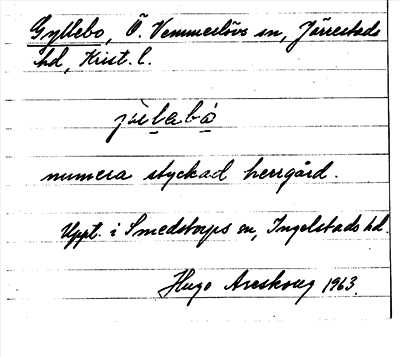 Gyllebo, Ö. Vemmerlövs sn, Järrestads
hd, Krist. l.
numera styckad herrgård.
Uppt. i Smedstorps sn, Ingelstads hd.
Hugo Areskoug 1963.